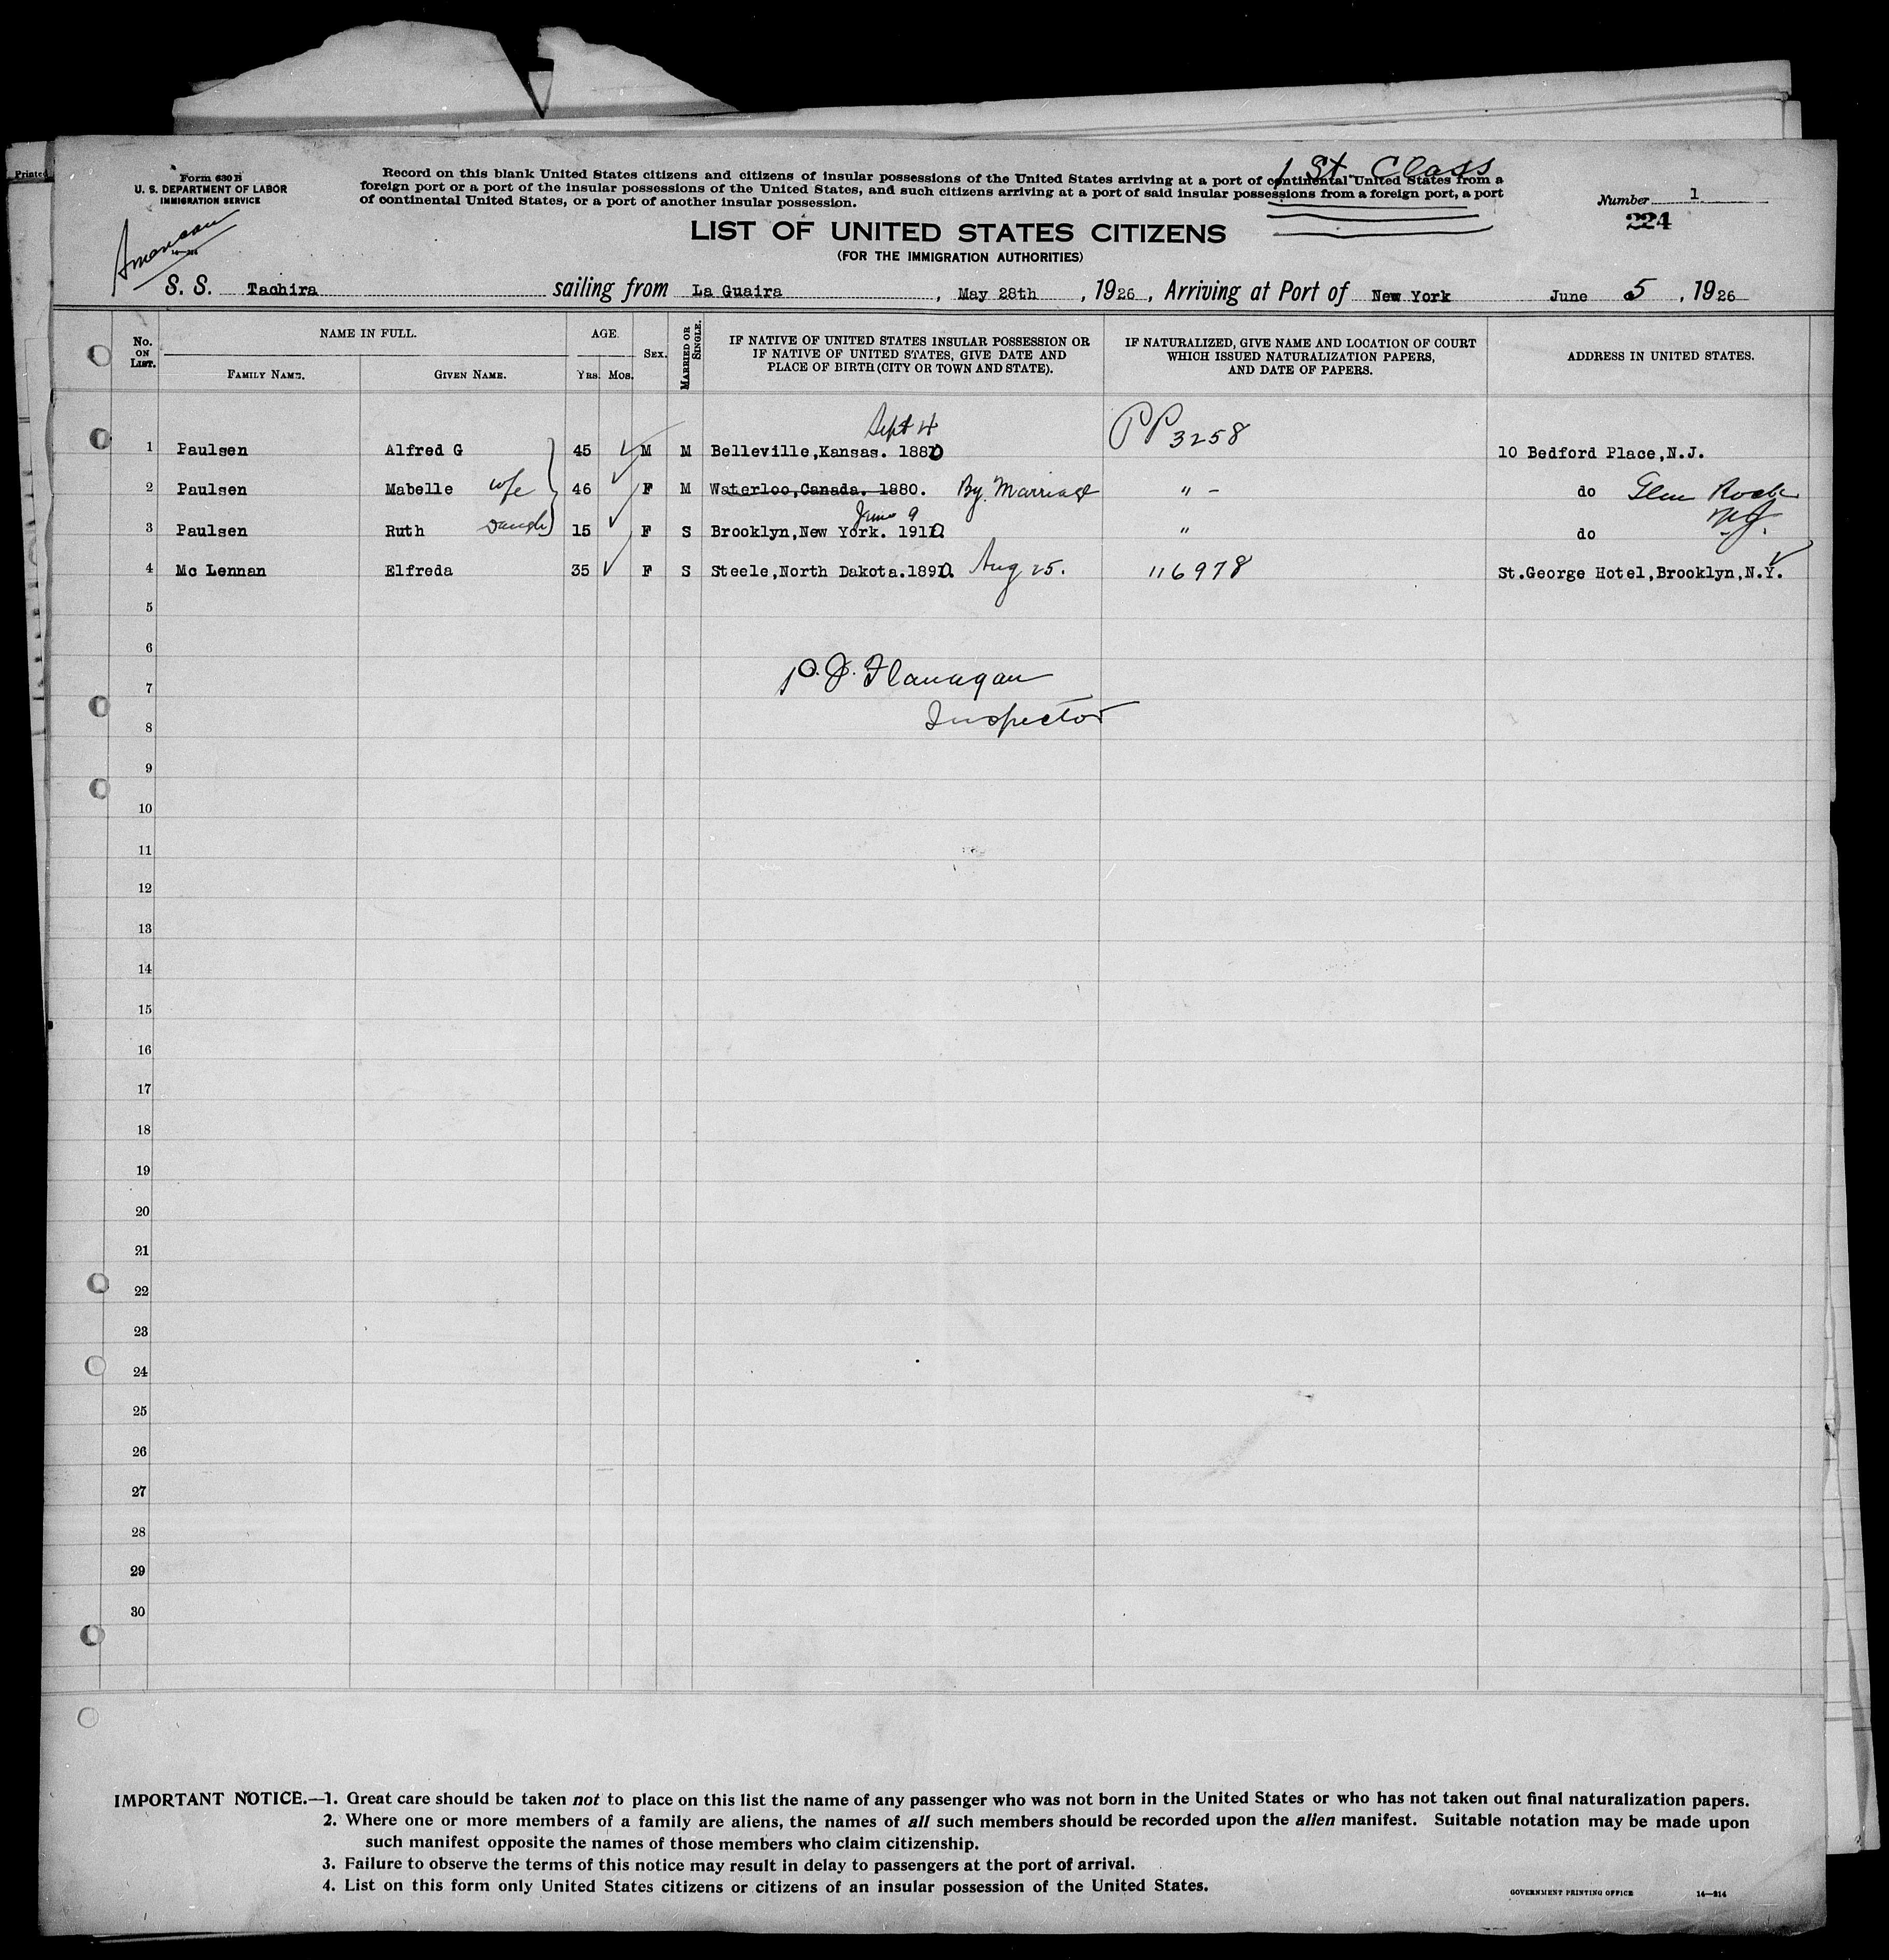 Printed
Form 630 B
U. S. DEPARTMENT OF LABOR
IMMIGRATION SERVICE
Record on this blank United States citizens and citizens of insular possessions of the United States arriving at a port of continental United States from a
foreign port or a port of the insular possessions of the United States, and such citizens arriving at a port of said insular possessions from a foreign port, a port
of continental United States, or a port of another insular possession.
1 St. Class
Number 1
224
American
LIST OF UNITED STATES CITIZENS
(FOR THE IMMIGRATION AUTHORITIES)
S. S. Tachira sailing from La Guaira, May 28th, 1926, Arriving at Port of New York June 5, 1926
No. ON LIST. NAME IN FULL. AGE. SEX. MARRIED OR SINGLE. IF NATIVE OF UNITED STATES INSULAR POSSESSION OR IF NATIVE OF UNITED STATES, GIVE DATE AND PLACE OF BIRTH (CITY OR TOWN AND STATE). IF NATURALIZED, GIVE NAME AND LOCATION OF COURT WHICH ISSUED NATURALIZATION PAPERS, AND DATE OF PAPERS. ADDRESS IN UNITED STATES.
FAMILY NAME. GIVEN NAME. YRS. MOS.
Sept 4
1 Paulsen Alfred G 45 M M Belleville,Kansas. 1880 PP 3258 10 Bedford Place,N.J.
2 Paulsen Mabelle wfe 46 F M Waterloo,Canada. 1880. By Marriage " - do Glen Rock
N.J.
June 9
3 Paulsen Ruth Daugh 15 F S Brooklyn,New York. 1910. " do
4 Mc Lennan Elfreda 35 F S Steele,North Dakota.1890. Aug 25. 116978 St.George Hotel,Brooklyn,N.Y.
5
6
P. J. Flanagan
7
Inspector
8
9
10
11
12
13
14
15
16
17
18
19
20
21
22
23
24
25
26
27
28
29
30
IMPORTANT NOTICE.—1. Great care should be taken not to place on this list the name of any passenger who was not born in the United States or who has not taken out final naturalization papers.
2. Where one or more members of a family are aliens, the names of all such members should be recorded upon the alien manifest. Suitable notation may be made upon
such manifest opposite the names of those members who claim citizenship.
3. Failure to observe the terms of this notice may result in delay to passengers at the port of arrival.
4. List on this form only United States citizens or citizens of an insular possession of the United States.
GOVERNMENT PRINTING OFFICE 14—214